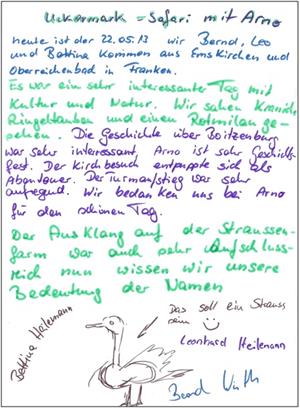 Uckermark = Safari mit Arno
heute ist der 22.05.13 wir Bernd, Leo
und Bettina kommen aus Emskirchen und
Oberreichenbach in Franken.
Es war ein sehr interessanter Tag mit
Kultur und Natur. Wir sahen Kraniche
Ringeltauben und einen Rotmilan ge-
sehen. Die Geschichte über Boitzenburg
war sehr interessant, Arno ist sehr Geschichts-
fest. Der Kirchbesuch entpuppte sich als
Abenteuer. Der Turmanstieg war sehr
aufregend. Wir bedanken uns bei Arno
für den schönen Tag.
Der Ausklang auf der Straussen-
farm war auch sehr Aufschluss-
reich nun wissen wir unsere
Bedeutung der Namen
Das soll ein Strauss
sein
Bettina
Leonhard Heilemann
Bernd